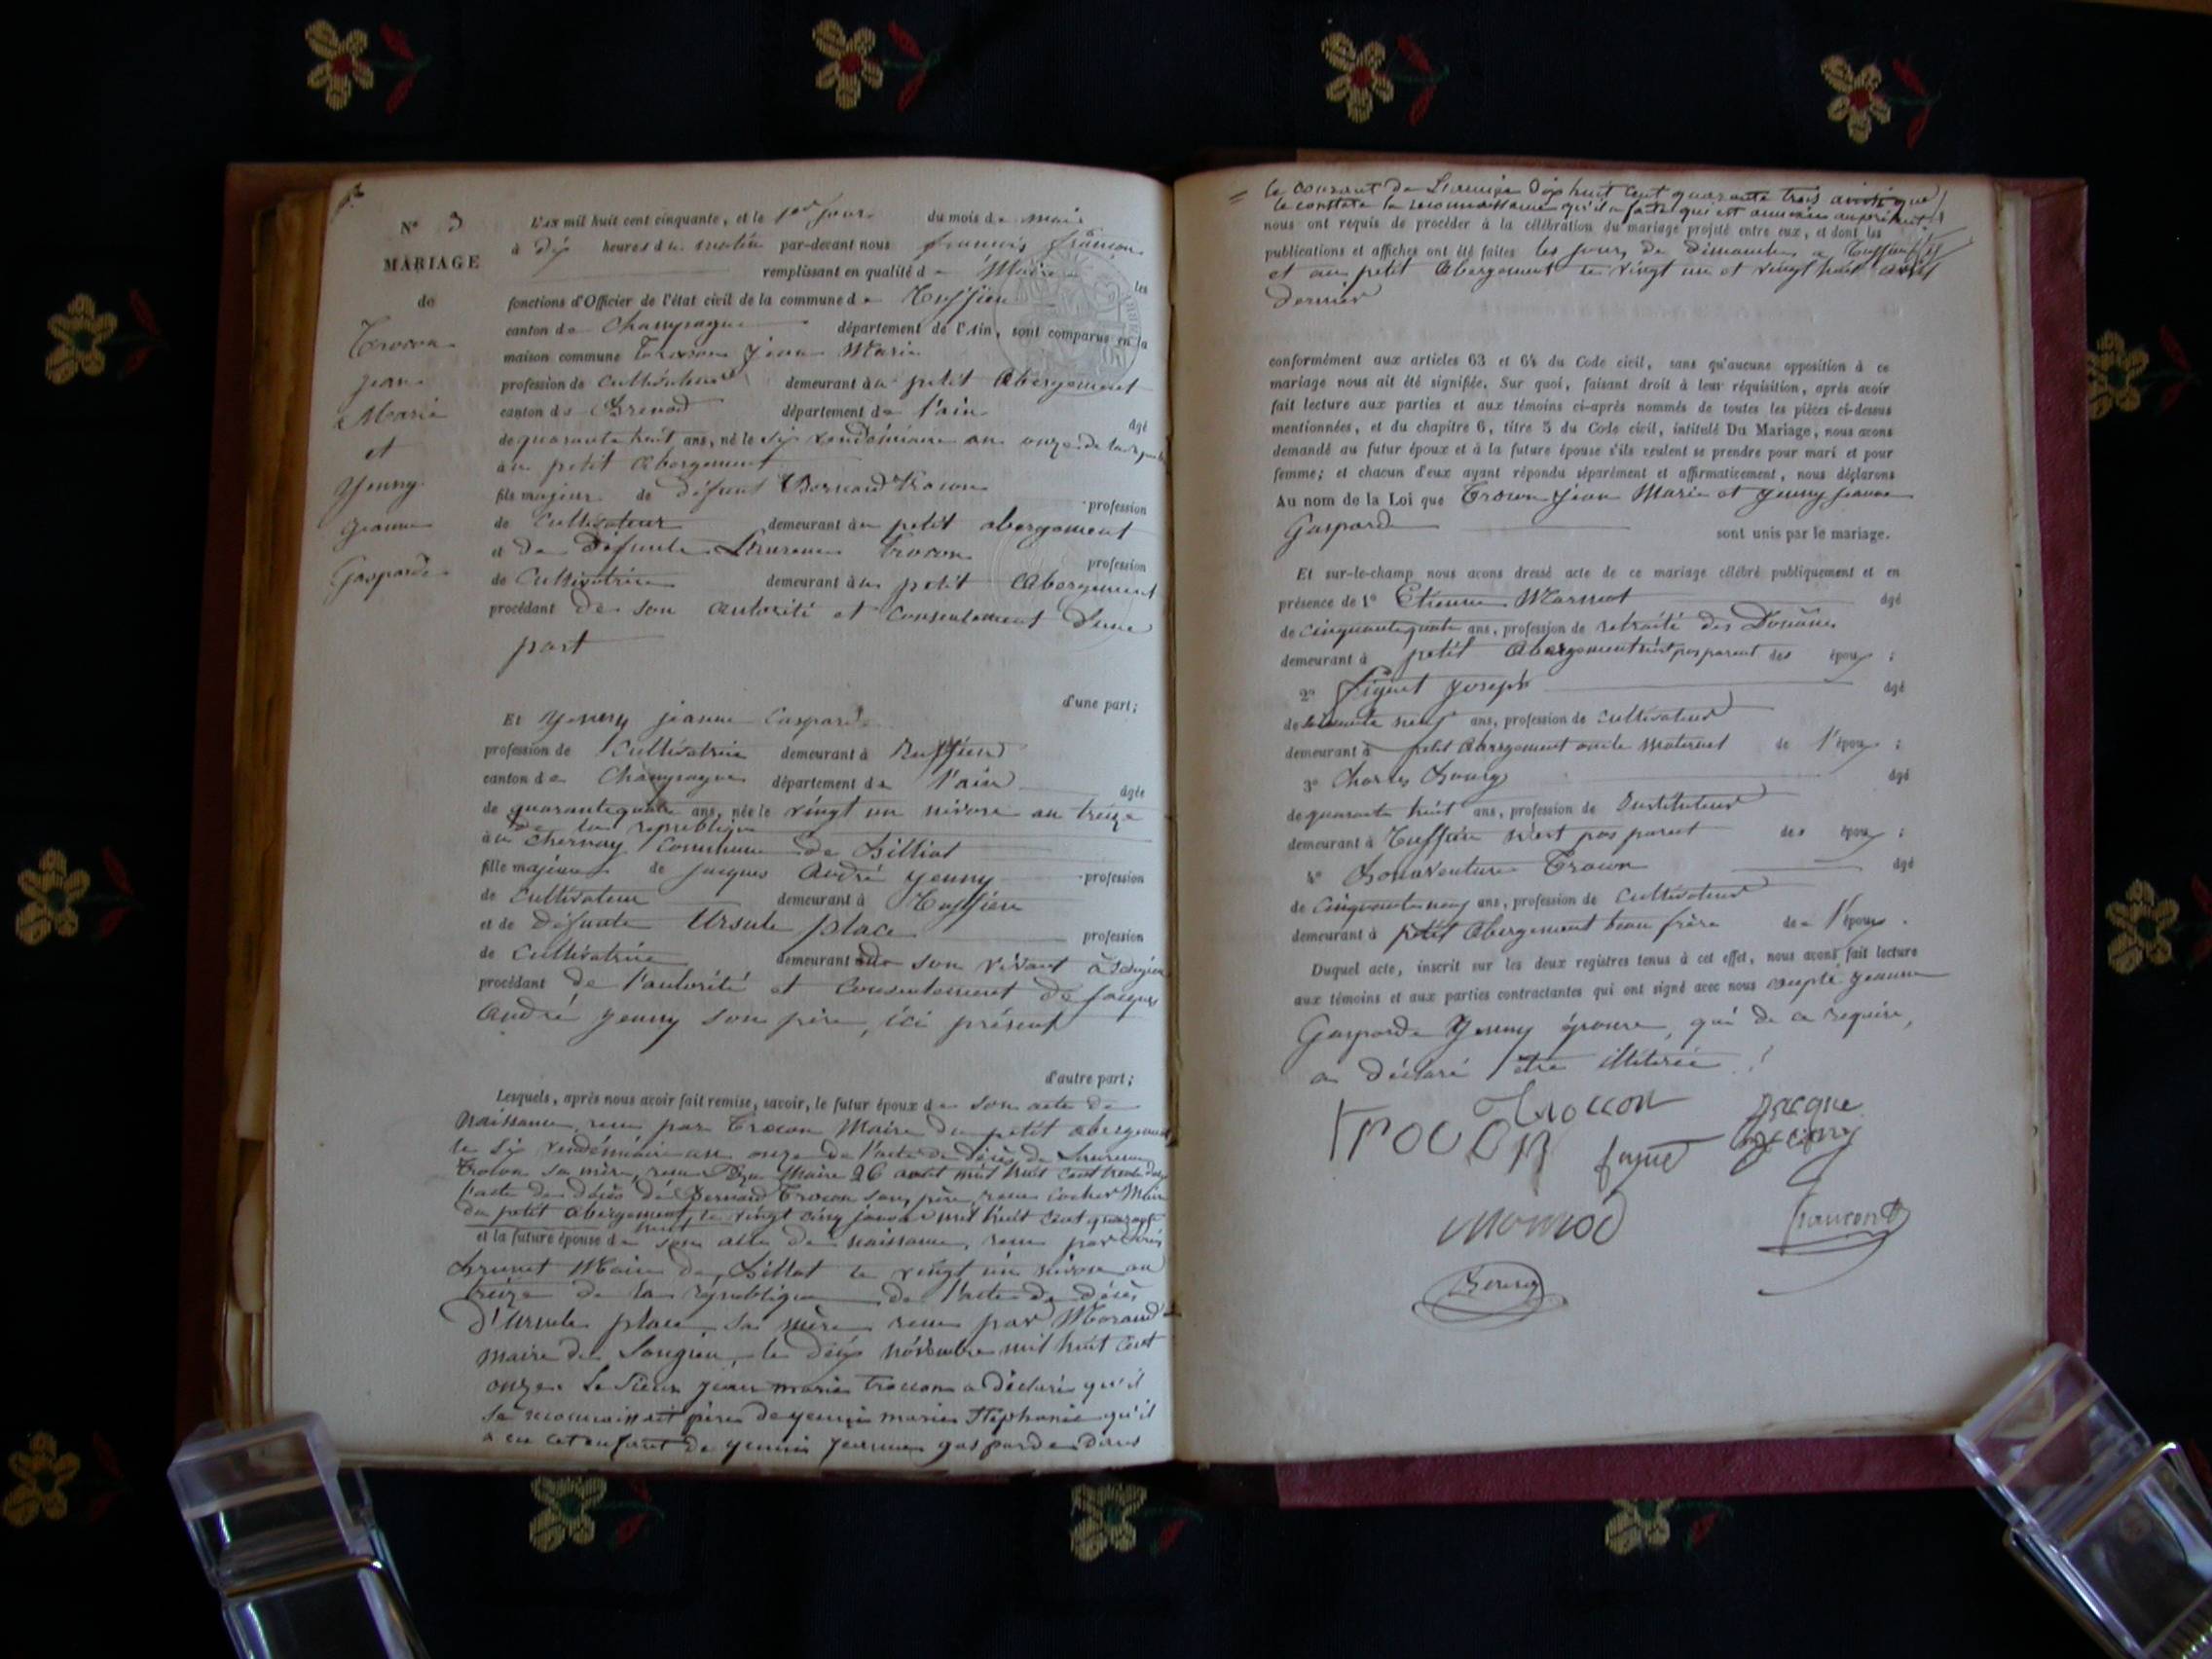 N° 3
MARIAGE
de
Trocon
Jean
Marie
et
Yenny
Jeanne
Gasparde
L'AN mil huit cent cinquante, et le 1er jour du mois de mai
à dix heures du matin par-devant nous françois françon
remplissant en qualité de Maire les
fonctions d'Officier de l'état civil de la commune de Ruffieu
canton de Champagne département de l'Ain, sont comparus en la
maison commune Trocon Jean Marie
profession de cultivateur demeurant au petit Abergement
canton de Brenod département de l'ain âgé
de quarante huit ans, né le six vendémiaire an onze de la république
au petit abergement
fils majeur de défunt Bernard Trocon profession
de Cultivateur demeurant au petit abergement
et de défunte Laurence Trocon profession
de Cultivatrice demeurant au petit Abergement
procédant de son autorité et consentement d'une
part
d'une part;
Et Yenny jeanne Gasparde
profession de Cultivatrice demeurant à Ruffieu
canton de Champagne département de l'ain âgée
de quarante quatre ans, née le vingt un nivose an treize
de la république
au Chernay Commune de Billiat
fille majeure de jacques André yenny profession
de Cultivateur demeurant à Ruffieu
et de défunte Ursule place profession
de Cultivatrice demeurant de son vivant à Songieu
procédant de l'autorité et Consentement de jacques
André yenny son père, ici présent
d'autre part;
Lesquels, après nous avoir fait remise, savoir, le futur époux de son acte de
Naissance, reçu par Trocon Maire du petit abergement
le six vendémiaire an onze de l'acte de décès de Laurence
Trocon sa mère, reçu Maire 26 août mil huit cent trente
l'acte de décès de Bernard Trocon son père, reçu Maire
du petit Abergement, le vingt cinq mil huit cent quarante
huit
et la future épouse de son acte de naissance, reçu par
Brunet Maire de Billiat le vingt un nivose an
treize de la république de l'acte de décès
d'Ursule place, sa mère reçu par Morand
maire de Songieu, le dix novembre mil huit cent
onze. Le Sieur jean marie troccon a déclaré qu'il
se reconnaissait père de yennie marie Stéphanie qu'il
a eu cet enfant de yennie jeanne gasparde dans
le courant de L'année dix huit cent quarante trois ainsi que
le constate la reconnaissance qu'il a faite qui est annexée au présent
nous ont requis de procéder à la célébration du mariage projeté entre eux, et dont les
publications et affiches ont été faites les jours de dimanches à Ruffieu
et au petit Abergement les vingt un et vingt huit avril
dernier
conformément aux articles 63 et 64 du Code civil, sans qu'aucune opposition à ce
mariage nous ait été signifiée. Sur quoi, faisant droit à leur réquisition, après avoir
fait lecture aux parties et aux témoins ci-après nommés de toutes les pièces ci-dessus
mentionnées, et du chapitre 6, titre 5 du Code civil, intitulé Du Mariage, nous avons
demandé au futur époux et à la future épouse s'ils veulent se prendre pour mari et pour
femme; et chacun d'eux ayant répondu séparément et affirmativement, nous déclarons
Au nom de la Loi que Trocon Jean Marie et yenny jeanne
Gasparde
sont unis par le mariage.
Et sur-le-champ nous avons dressé acte de ce mariage célébré publiquement et en
présence de 1° Etienne âgé
de cinquante quatre ans, profession de retraité des Douanes
demeurant à petit Abergement n'est pas parent des époux;
2° joseph âgé
de soixante neuf ans, profession de cultivateur
demeurant à petit Abergement oncle maternel de l'époux;
3° Charles Bourg âgé
de quarante huit ans, profession de Instituteur
demeurant à Ruffieu n'est pas parent des époux;
4° Bonaventure Trocon âgé
de Cinquante neuf ans, profession de Cultivateur
demeurant à petit Abergement beau frère de l'époux.
Duquel acte, inscrit sur les deux registres tenus à cet effet, nous avons fait lecture
aux témoins et aux parties contractantes qui ont signé avec nous excepté jeanne
Gasparde Yenny épouse, qui de ce requise,
a déclaré être illitérée
troccon
jacque
TROCON
yenny
françon